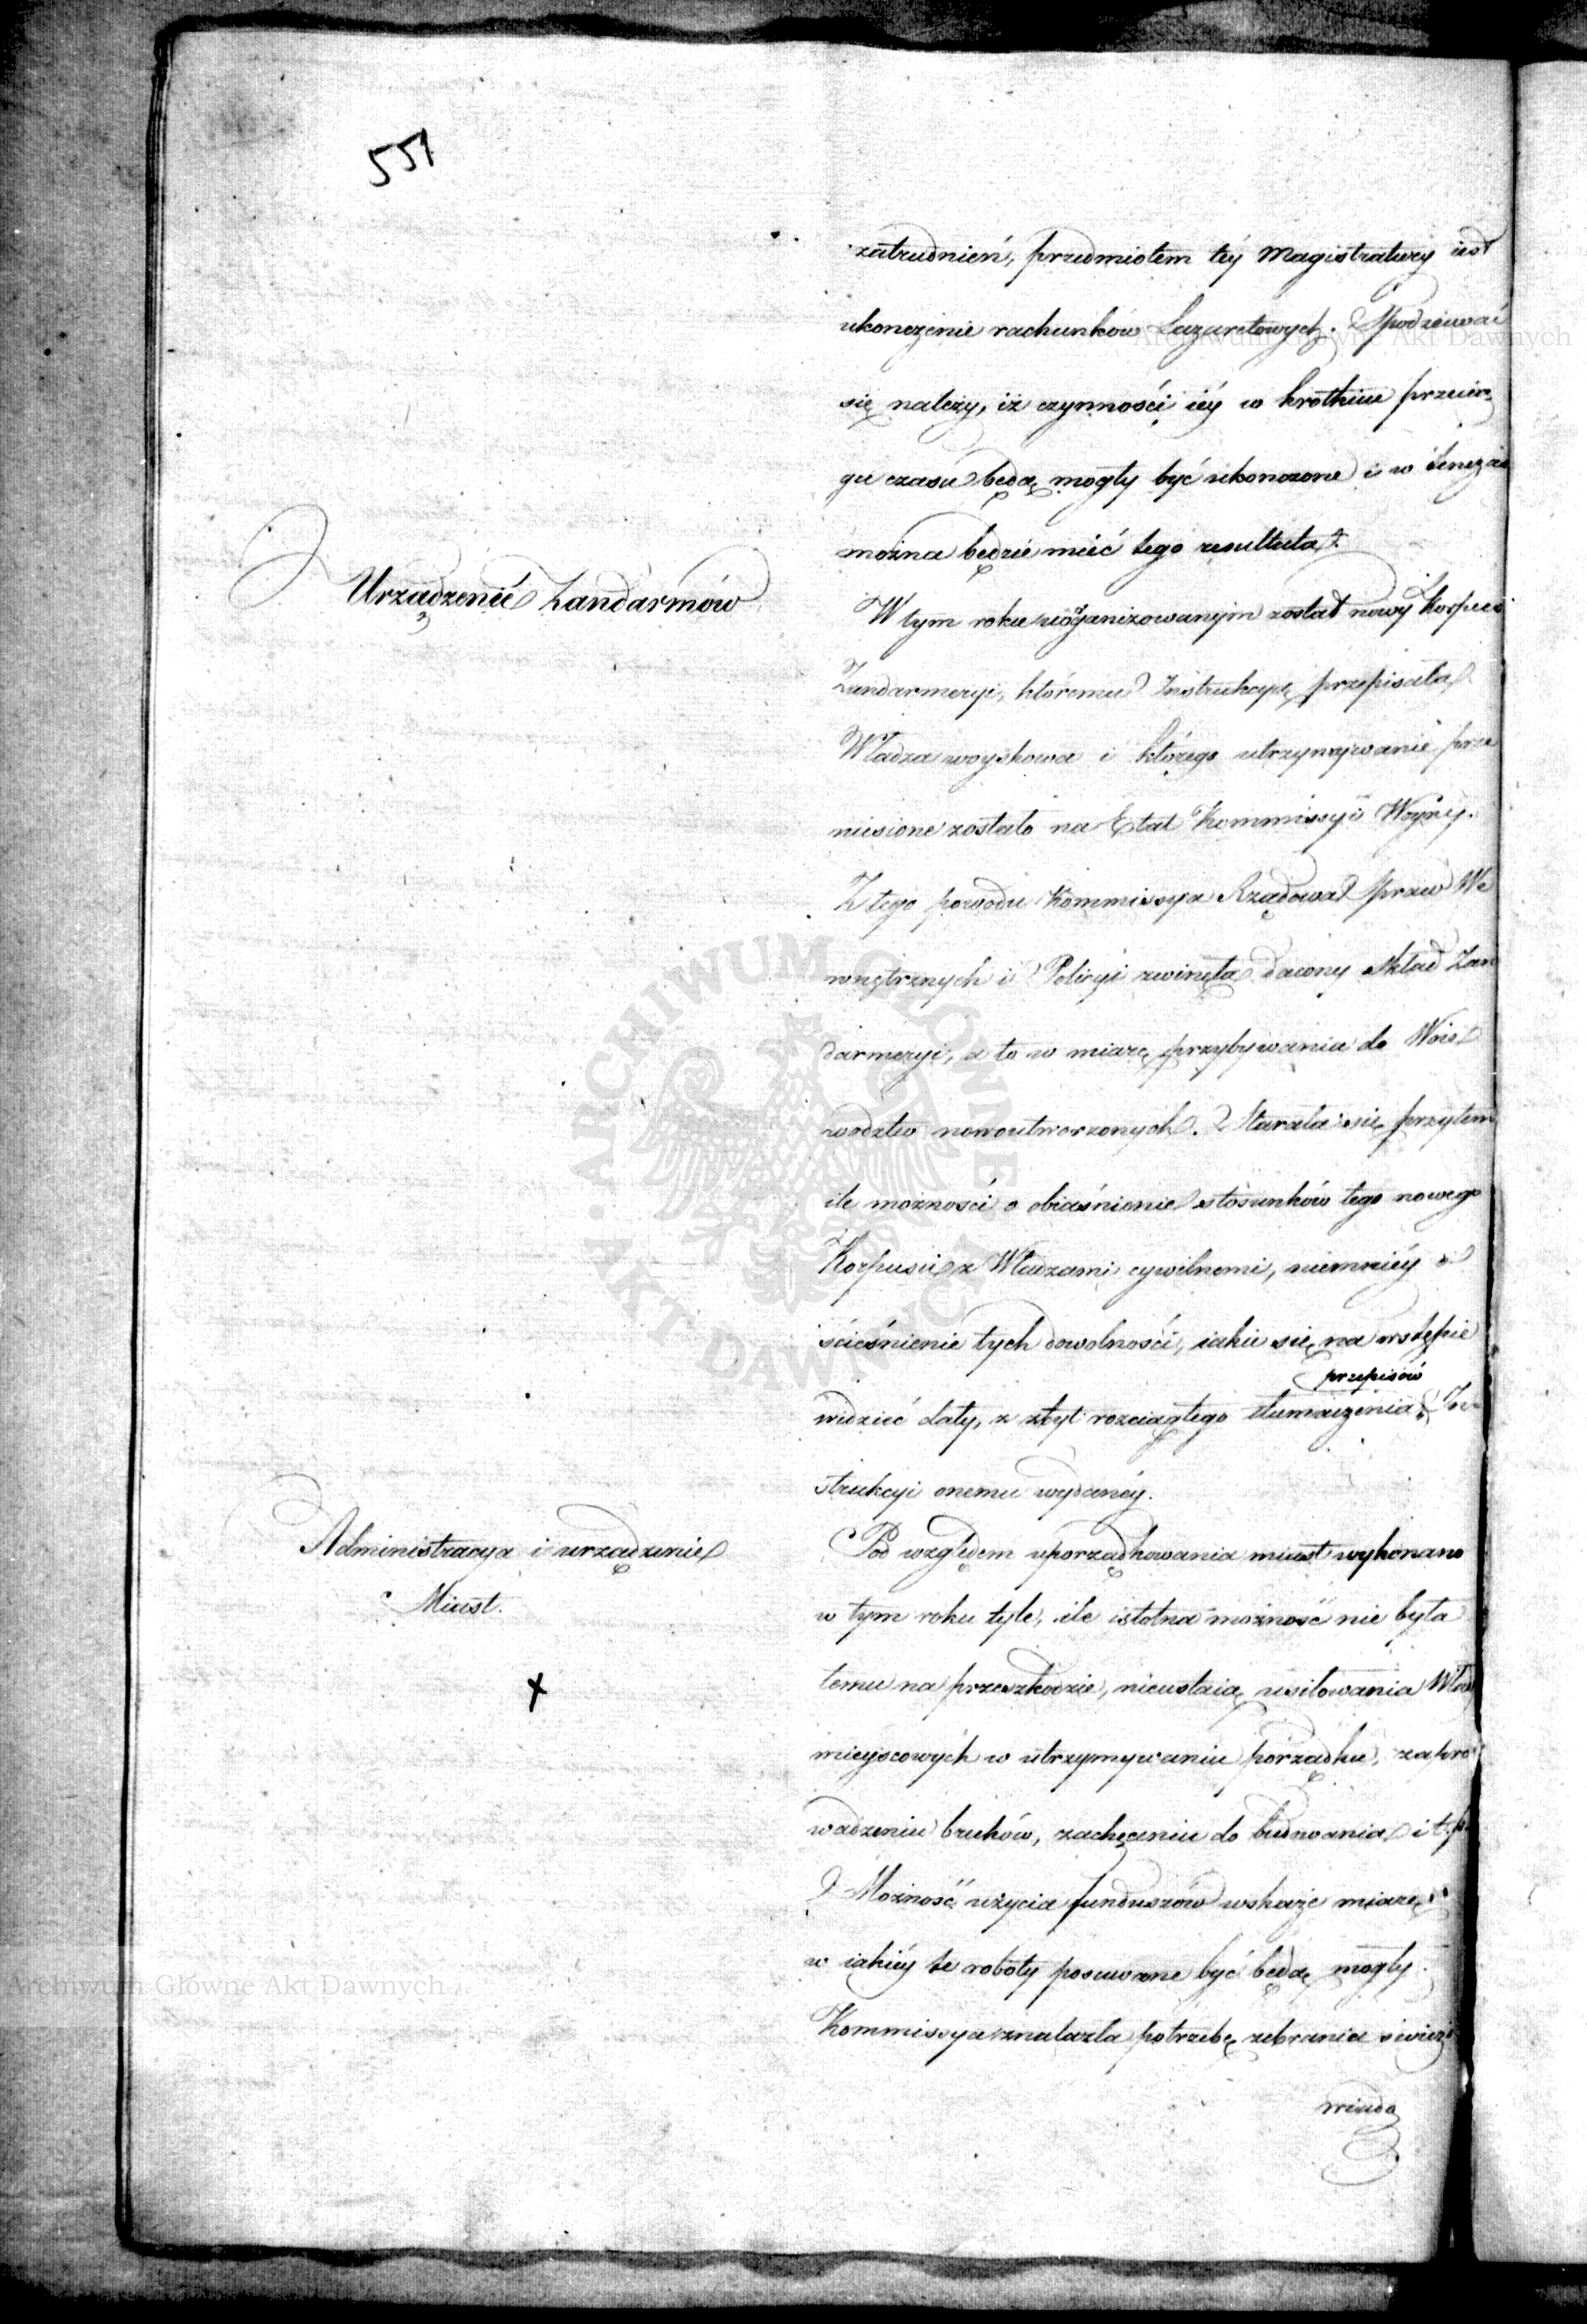 551
zatrudnień, przedmiotem téy Magistratury iest
ukończenie rachunków Lazaretowych. Spodziewać
się należy, iż czynności iéy w krótkim przecią=
gu czasu będą mogły być ukończone i w tenczas
można będzie mieć tego resultata.
Urządzenie Żandarmów
W tym roku uorganizowanym został nowy Korpus
Żandarmeryi, któremu Instrukcyą przepisała
Władza woyskowa i którego utrzymywanie prze
niesione zostało na Etat Kommissyi Woyny.
Z tego powodu Kommissya Rządowa Spraw We
wnętrznych i Policyi zwinęła dawny skład Żan
darmeryi, a to w miarę przybywania do Woie
wództw nowoutworzonych. Starała się przytem
ile możności o obiaśnienie stosunków tego nowego
Korpusu z Władzami cywilnemi, niemniéy o
ścieśnienie tych dowolności, iakie się na wstępie
przepisów
widzieć dały, z zbyt rozciągłego tłumaczenia In
strukcyi onemu wydanéy.
Administracya i urządzenie
Miast.
Pod względem uporządkowania miast wykonano
w tym roku tyle, ile istotna możność nie była
temu na przeszkodzie, nieustaią usiłowania Wład
mieyscowych w utrzymywaniu porządku, zapro
wadzeniu bruków, zachęceniu do budowania i t. p.
Możność użycia funduszów wskaże miarę,
w iakiéy te roboty posuwane być będą mogły.
Kommissya znalazła potrzebę zebrania
wiado
Archiwum Główne Akt Dawnych
Archiwum Główne Akt Dawnych
ARCHIWUM GŁÓWNE AKT DAWNYCH